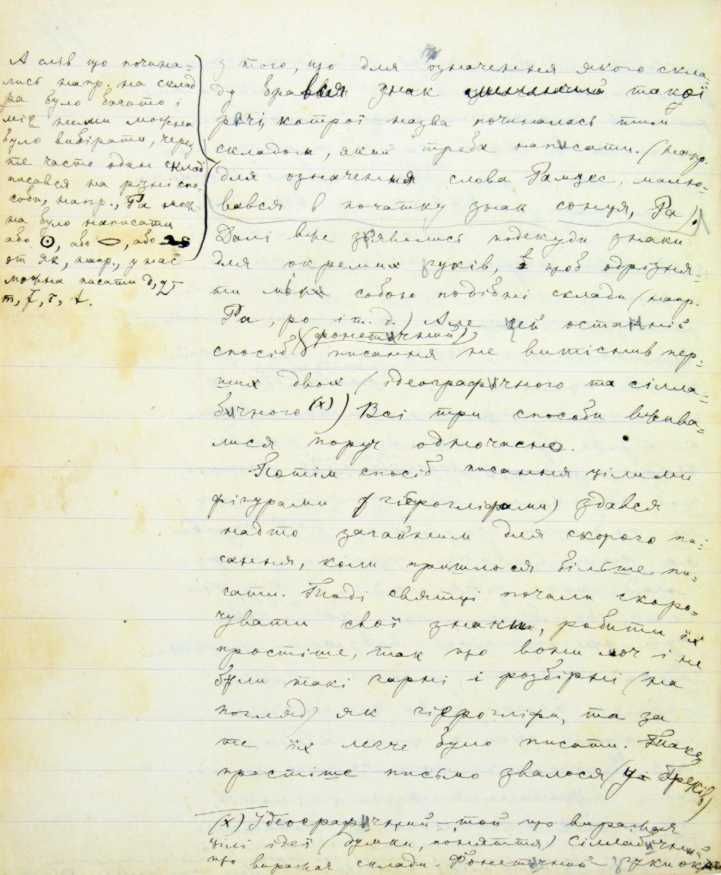 А слів що почина-
лись напр. на склад
ра було богато і
між ними можна
було вибірати, через
те часто один склад
писався на різні спо-
соби, напр., Ра мож-
на було написати
або або або
от як, напр., у нас
можна писати д,
т, т, т.
з того, що для означення якого скла-
ду бравься знак такої
річі, котрої назва починалась тим
складом, який треба написати. (напр.
для означення слова Рамзес, малю-
вався в початку знак сонця, Ра).
Далі вже з'явились подекуди знаки
для окремих гуків, щоб одрізня-
ти між собою подібні склади (напр.
Ра, ро і т. д.) Але цей останній
(фонетичний)
спосіб писання не витіснив пер-
ших двох (ідеографичного та сілла-
бичного (х)) Всі три способи вжива-
лися поруч одночасно.
Потім спосіб писання цілими
фігурами (гіерогліфами) здався
надто загайним для скорого пи-
сання, коли прийшлося більше пи-
сати. Тоді святці почали скоро-
чувати свої знаки, робити їх
простіше, так що вони хоч і не
були такі гарні і розбірні (на
погляд) як гієрогліфи, та за
те їх легче було писати. Таке
простіше письмо звалося (у Греків)
(х) Ідеографичний той що виражая
цілі ідеї (думки, поняття) Сіллабичний
що виражая склади. Фонетичний